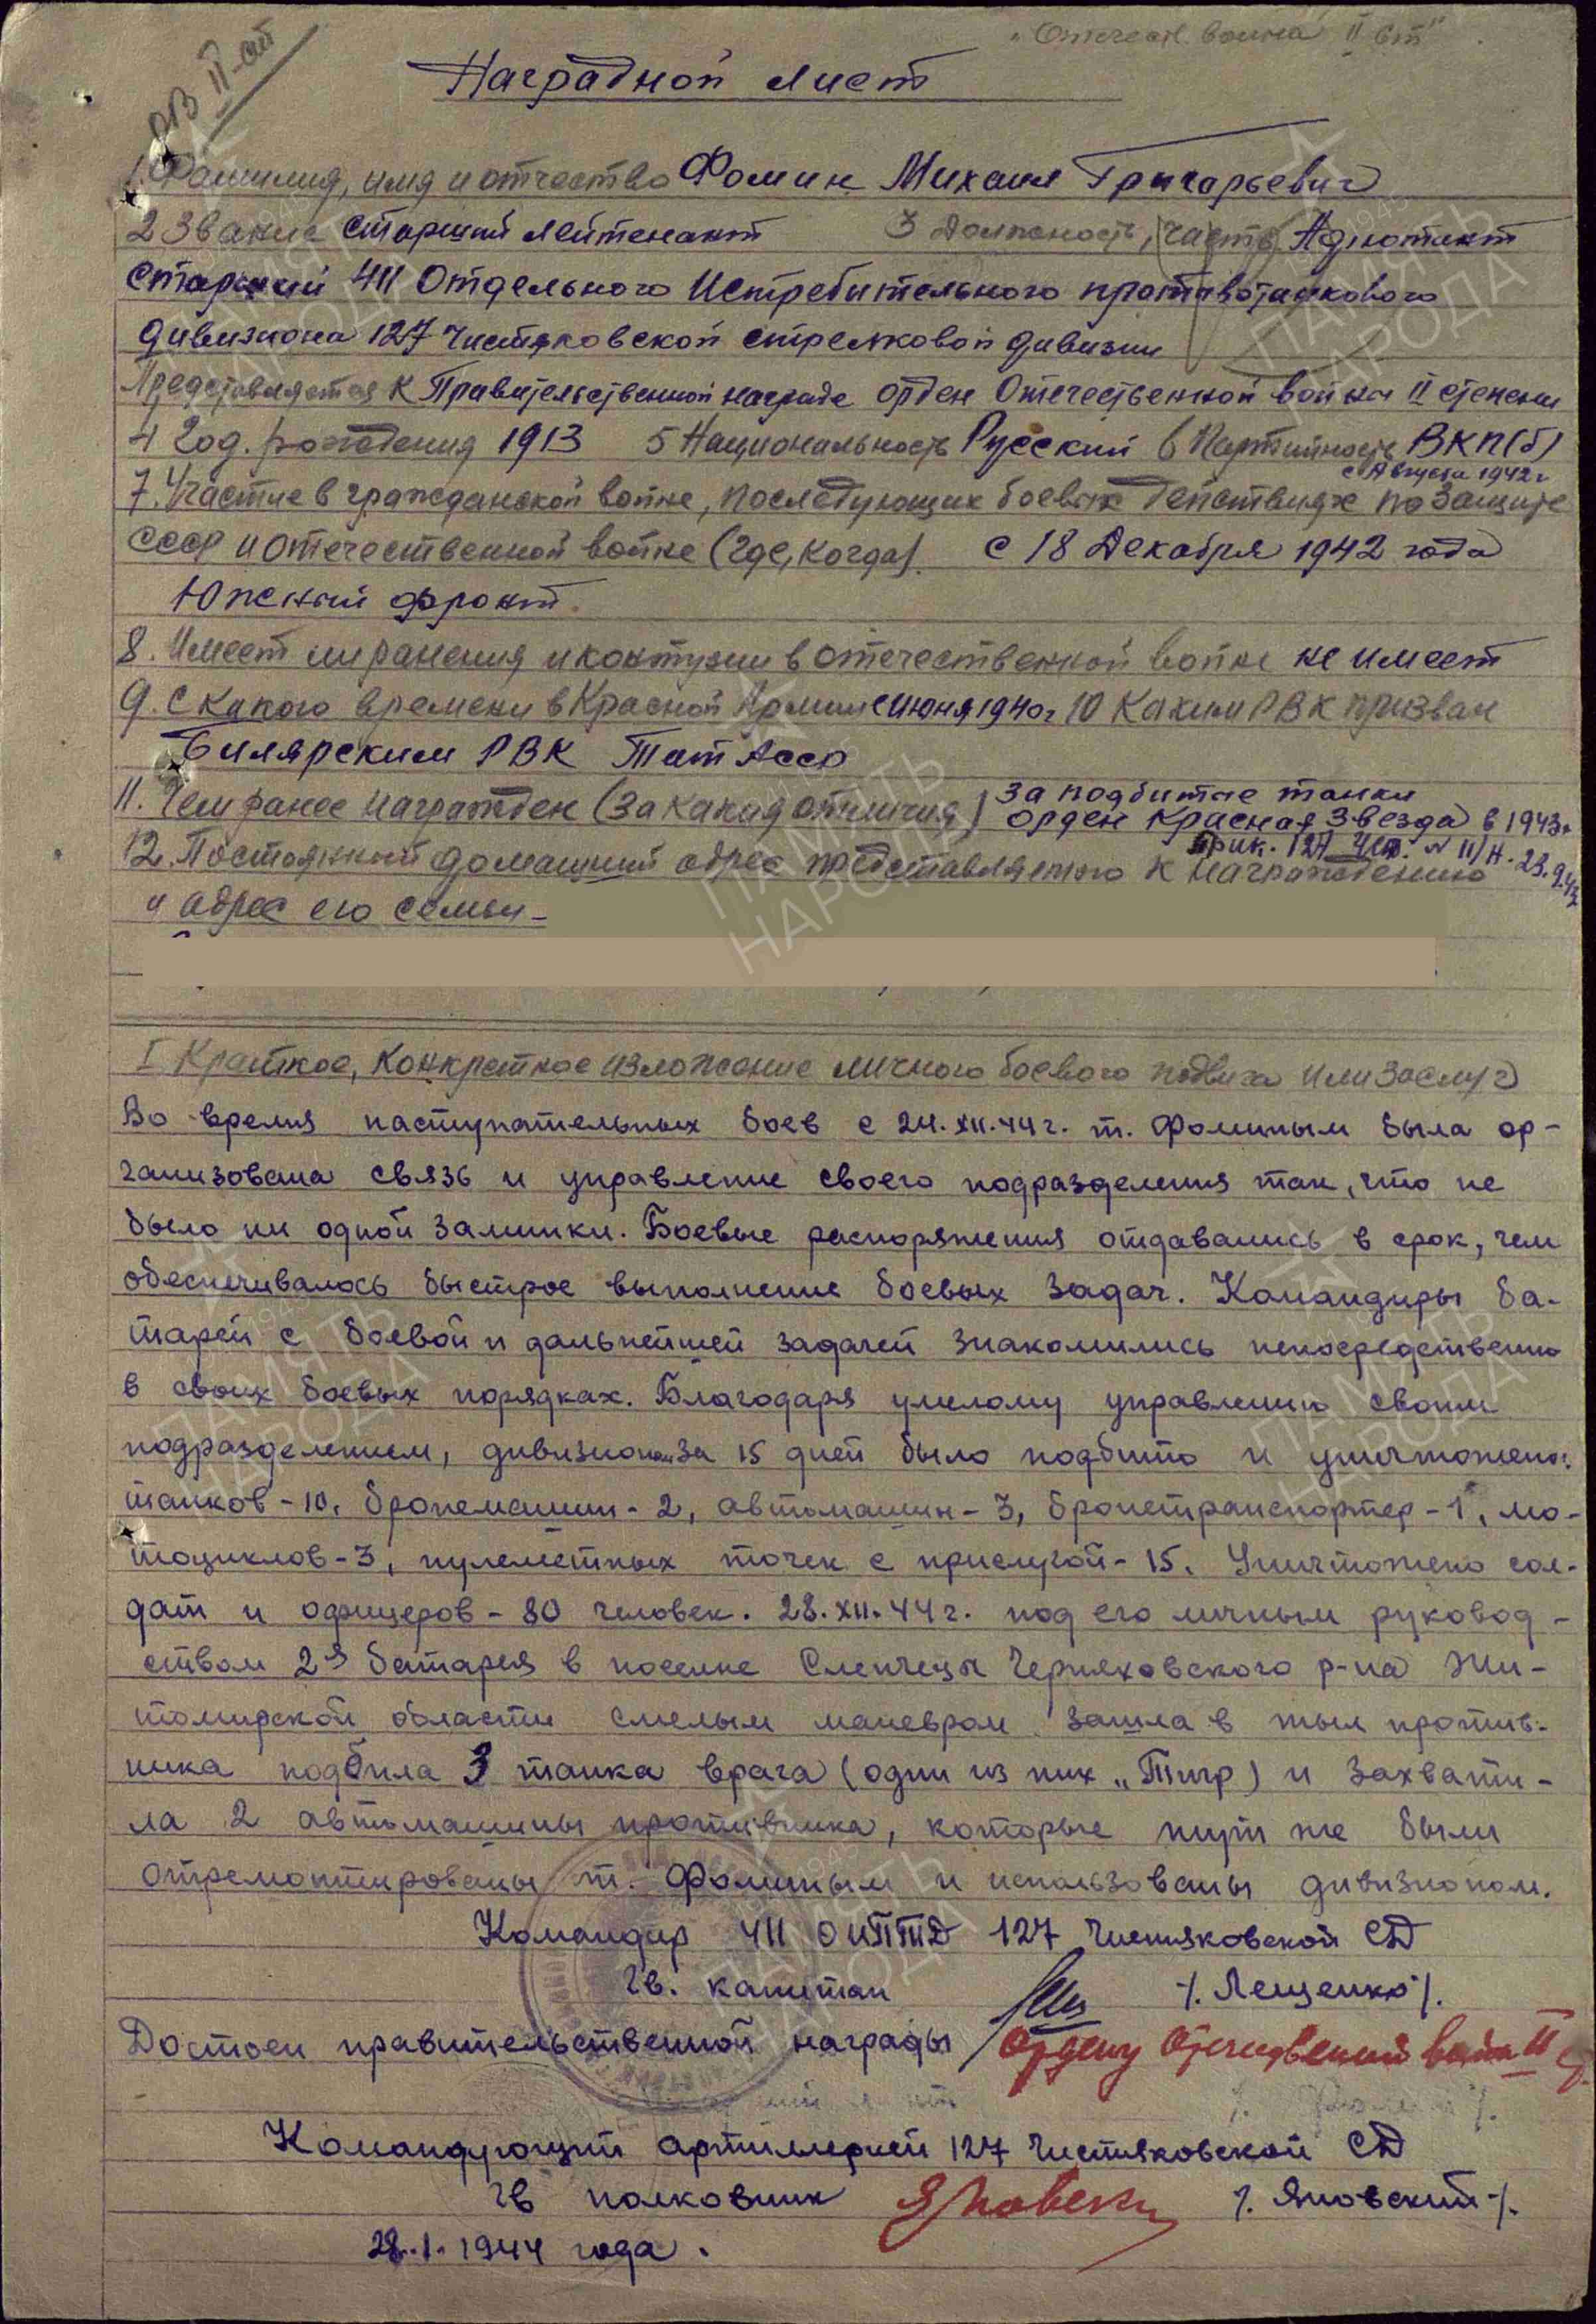 „Отечеств. война II ст"
ОВ II-ст
Наградной лист
1. Фамилия, имя и отчество Фомин Михаил Григорьевич
2 Звание старший лейтенант 3 Должность, часть Адъютант
старший 411 Отдельного Истребительного противотанкового
дивизиона 127 Чистяковской стрелковой дивизии
Представляется к Правительственной награде орден Отечественной войны II степени
4 Год. рождения 1913 5 Национальность Русский 6 Партийность ВКП(б)
с Августа 1942 г
7. Участие в гражданской войне, последующих боевых действиях по защите
СССР и отечественной войне (где, когда). с 18 Декабря 1942 года
Южный фронт.
8. Имеет ли ранения и контузии в отечественной войне не имеет
9. С какого времени в Красной Армии с июня 1940 г 10 Каким РВК призван
Билярским РВК Тат Асср
11. Чем ранее награжден (за какия отличия) за подбитые танки
орден Красная Звезда в 1943 г
Прик. 127 Чсд. № 11/н. 23.9.43
12. Постоянный домашний адрес представляемого к награждению
и адрес его семьи -
I Краткое, конкретное изложение личного боевого подвига или заслуг
Во время наступательных боев с 24.XII.44 г. т. Фоминым была ор-
ганизована связь и управление своего подразделения так, что не
было ни одной заминки. Боевые распоряжения отдавались в срок, чем
обеспечивалось быстрое выполнение боевых задач. Командиры ба-
тарей с боевой и дальнейшей задачей знакомились непосредственно
в своих боевых порядках. Благодаря умелому управлению своим
подразделением, дивизионом за 15 дней было подбито и уничтожено:
танков - 10, бронемашин - 2, автомашин - 3, бронетранспортер - 1, мо-
тоциклов - 3, пулеметных точек с прислугой - 15. Уничтожено сол-
дат и офицеров - 80 человек. 28.XII.44 г. под его личным руковод-
ством 2я батарея в поселке Слепчецы Черняховского р-на Жи-
томирской области смелым маневром зашла в тыл против-
ника подбила 3 танка врага (один из них „Тигр) и захвати-
ла 2 автомашины противника, которые тут же были
отремонтированы т. Фоминым и использованы дивизионом.
Командир 411 ОИПТД 127 Чистяковской СД
Гв. капитан /. Лещенко /.
Достоен правительственной награды Ордену Отечественной война II ст.
Командующий артиллерией 127 Чистяковской СД
Гв полковник Яновский /. Яновский /.
28.1.1944 года.
ПАМЯТЬ НАРОДА